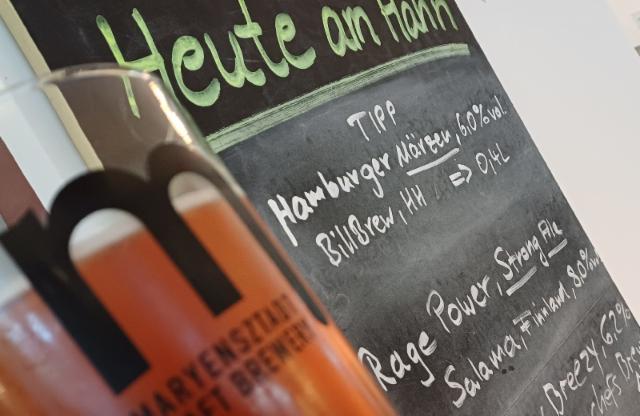 Heute am Hahn
TIPP
Hamburger Märzen, 6,0% vol.
BillBrew, HH => 0,4L
Rage Power, Strong Ale
Salama, Finnland, 8,0%
Breezy, 6,2%
m
MARYENSZTADT
CRAFT BREWERY